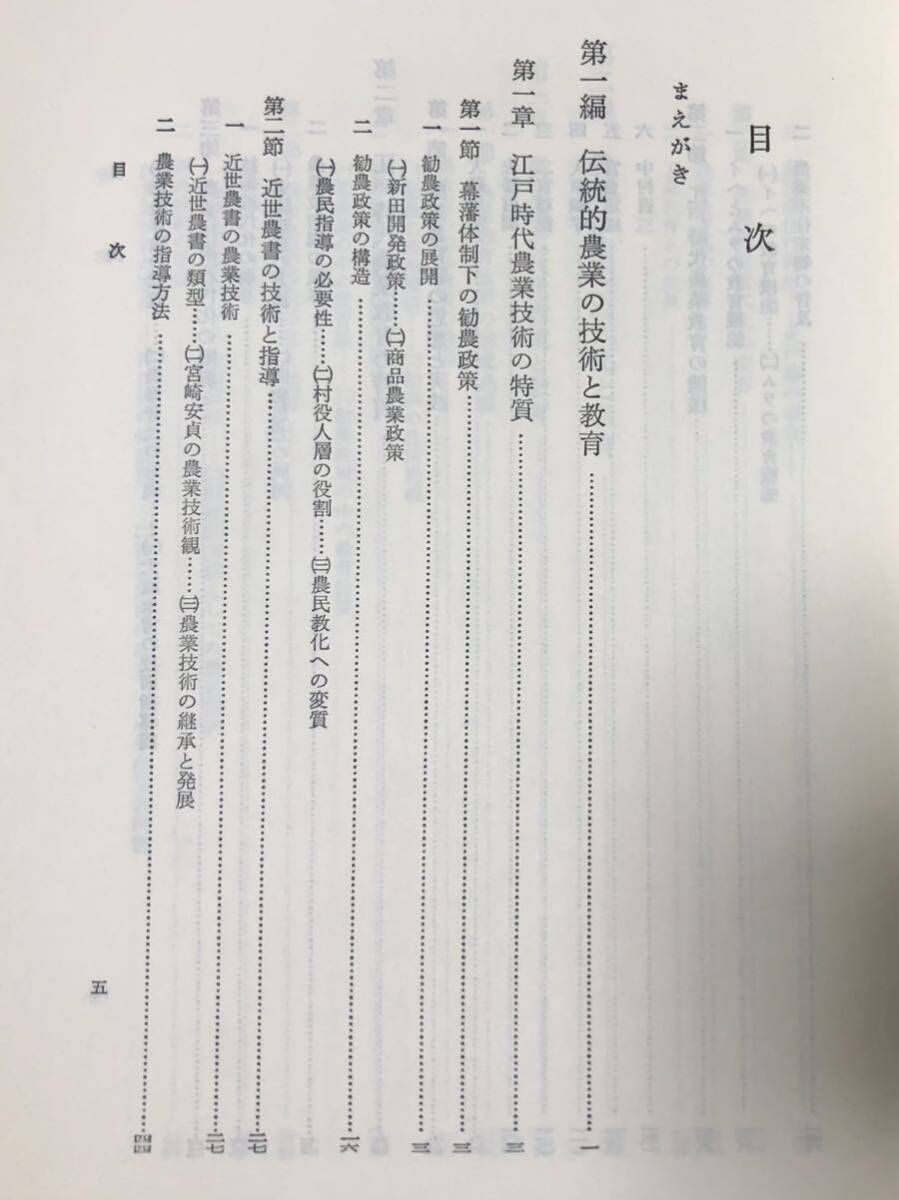 目次
まえがき
第一編 伝統的農業の技術と教育……一
第一章 江戸時代農業技術の特質……三
第一節 幕藩体制下の勧農政策……三
一 勧農政策の展開……三
㈠新田開発政策……㈡商品農業政策
二 勧農政策の構造……一六
㈠農民指導の必要性……㈡村役人層の役割……㈢農民教化への変質
第二節 近世農書の技術と指導……二七
一 近世農書の農業技術……二七
㈠近世農書の類型……㈡宮崎安貞の農業技術観……㈢農業技術の継承と発展
二 農業技術の指導方法……四四
目次
五